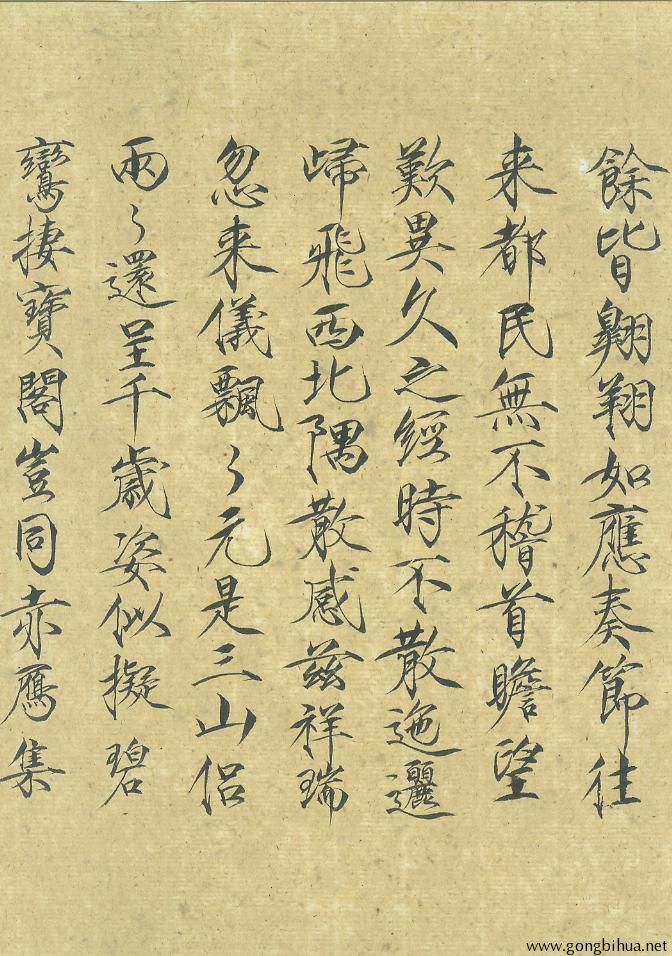 餘皆翱翔如應奏節往
来都民無不稽首瞻望
歎異久之經時不散迤邐
歸飛西北隅散感茲祥瑞
忽来儀飄々元是三山侶
兩々還呈千歲姿似擬碧
鸞棲寶閣豈同赤鴈集
www.gongbihua.net